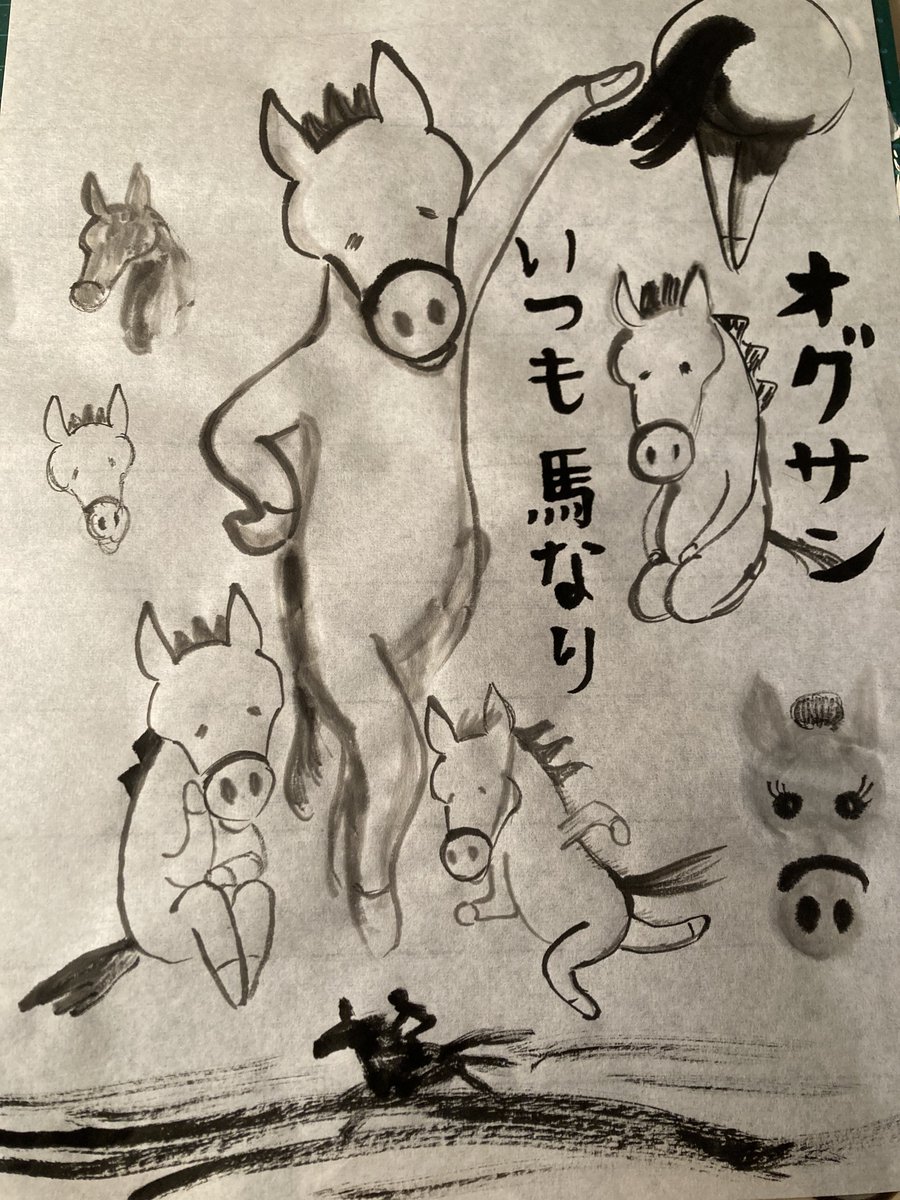 オグサン
いつも馬なり